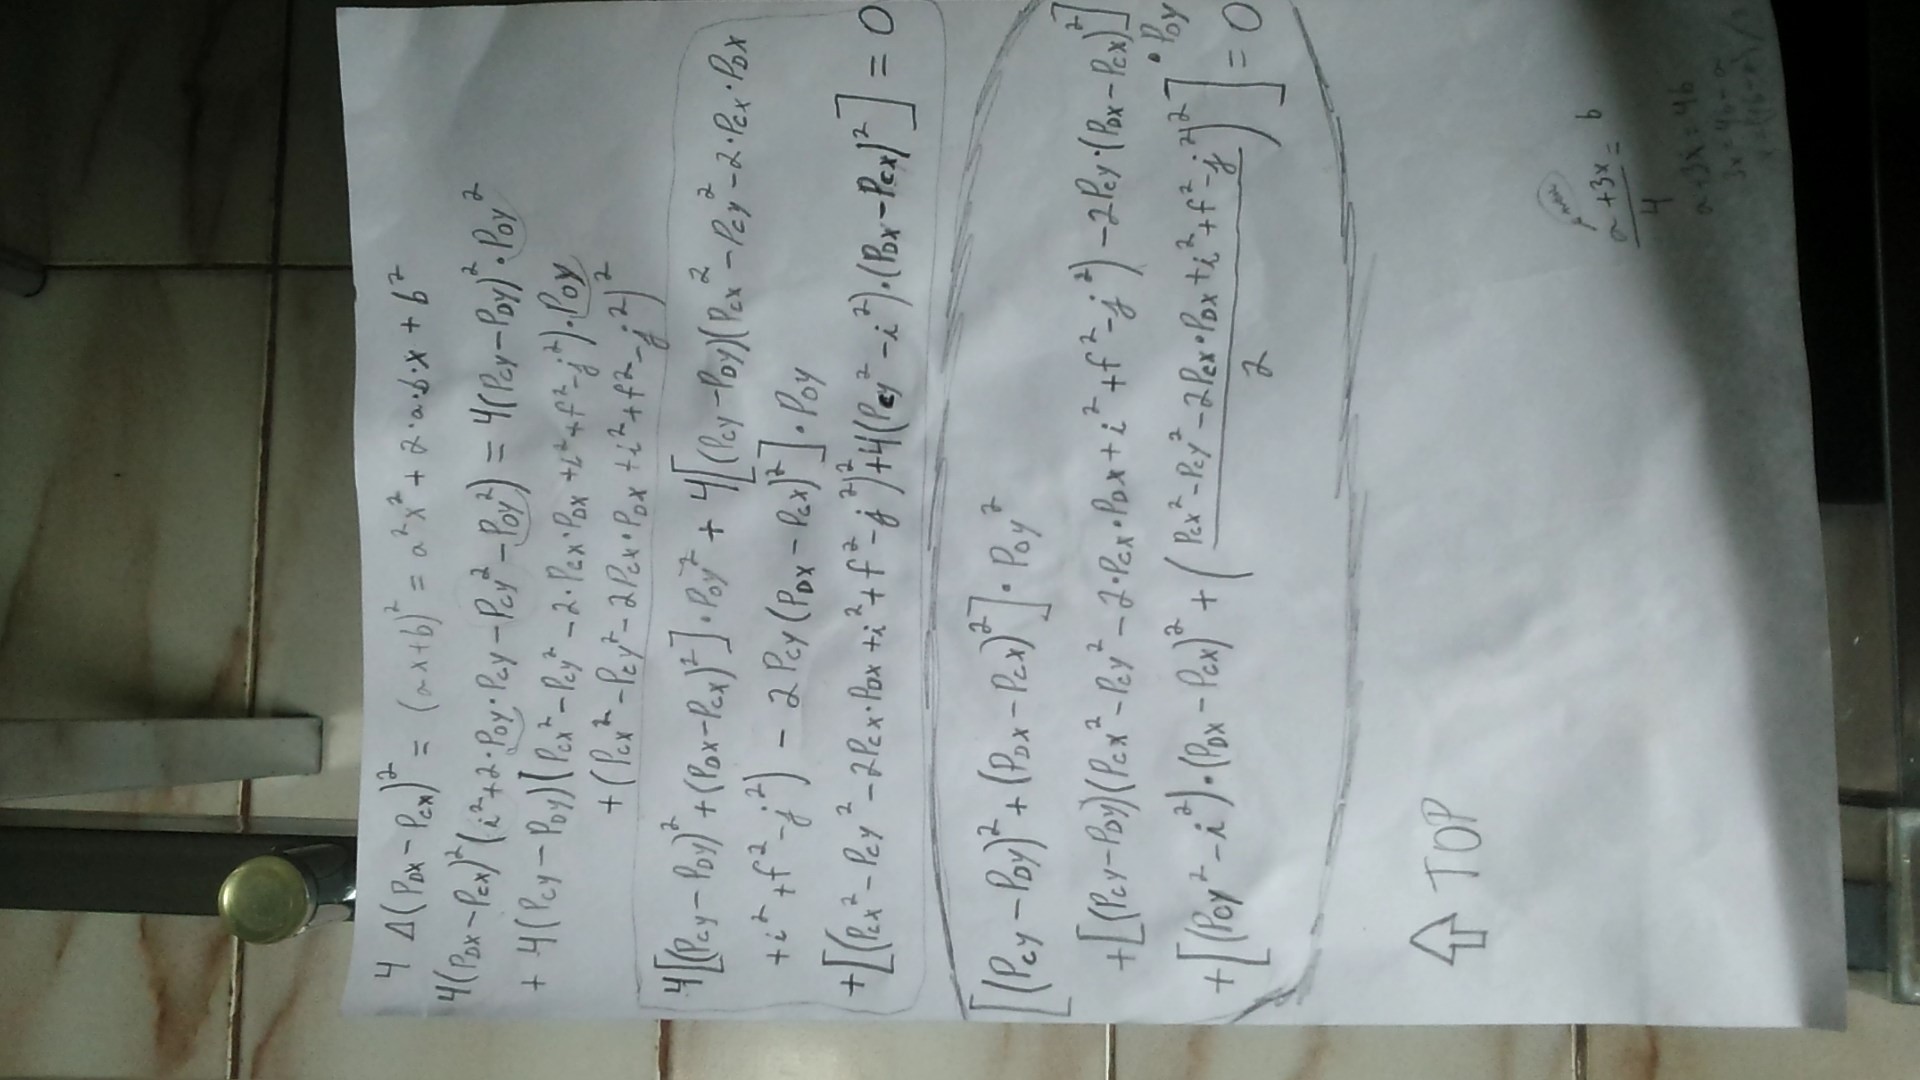 4 Δ(P_DX − P_CX)² = (ax+b)² = a²x² + 2·a·b·x + b²
4(P_DX − P_CX)²(i² + 2·P_OY·P_CY − P_CY² − P_OY²) = 4(P_CY − P_DY)²·P_OY²
+ 4(P_CY − P_DY)(P_CX² − P_CY² − 2·P_CX·P_DX + i² + f² − j²)·P_OY
+ (P_CX² − P_CY² − 2P_CX·P_DX + i² + f² − j²)²
4[(P_CY − P_DY)² + (P_DX − P_CX)²]·P_OY² + 4[(P_CY − P_DY)(P_CX² − P_CY² − 2·P_CX·P_DX
+ i² + f² − j²) − 2P_CY(P_DX − P_CX)²]·P_OY
+ [(P_CX² − P_CY² − 2P_CX·P_DX + i² + f² − j²)² + 4(P_CY² − i²)·(P_DX − P_CX)²] = 0
[(P_CY − P_DY)² + (P_DX − P_CX)²]·P_OY²
+ [(P_CY − P_DY)(P_CX² − P_CY² − 2·P_CX·P_DX + i² + f² − j²) − 2P_CY·(P_DX − P_CX)²]
·P_OY
+ [(P_CY² − i²)·(P_DX − P_CX)² + ((P_CX² − P_CY² − 2P_CX·P_DX + i² + f² − j²)/2)²] = 0
⇧ TOP
(a + 3x)/4 = b
a + 3x = 4b
3x = 4b − a